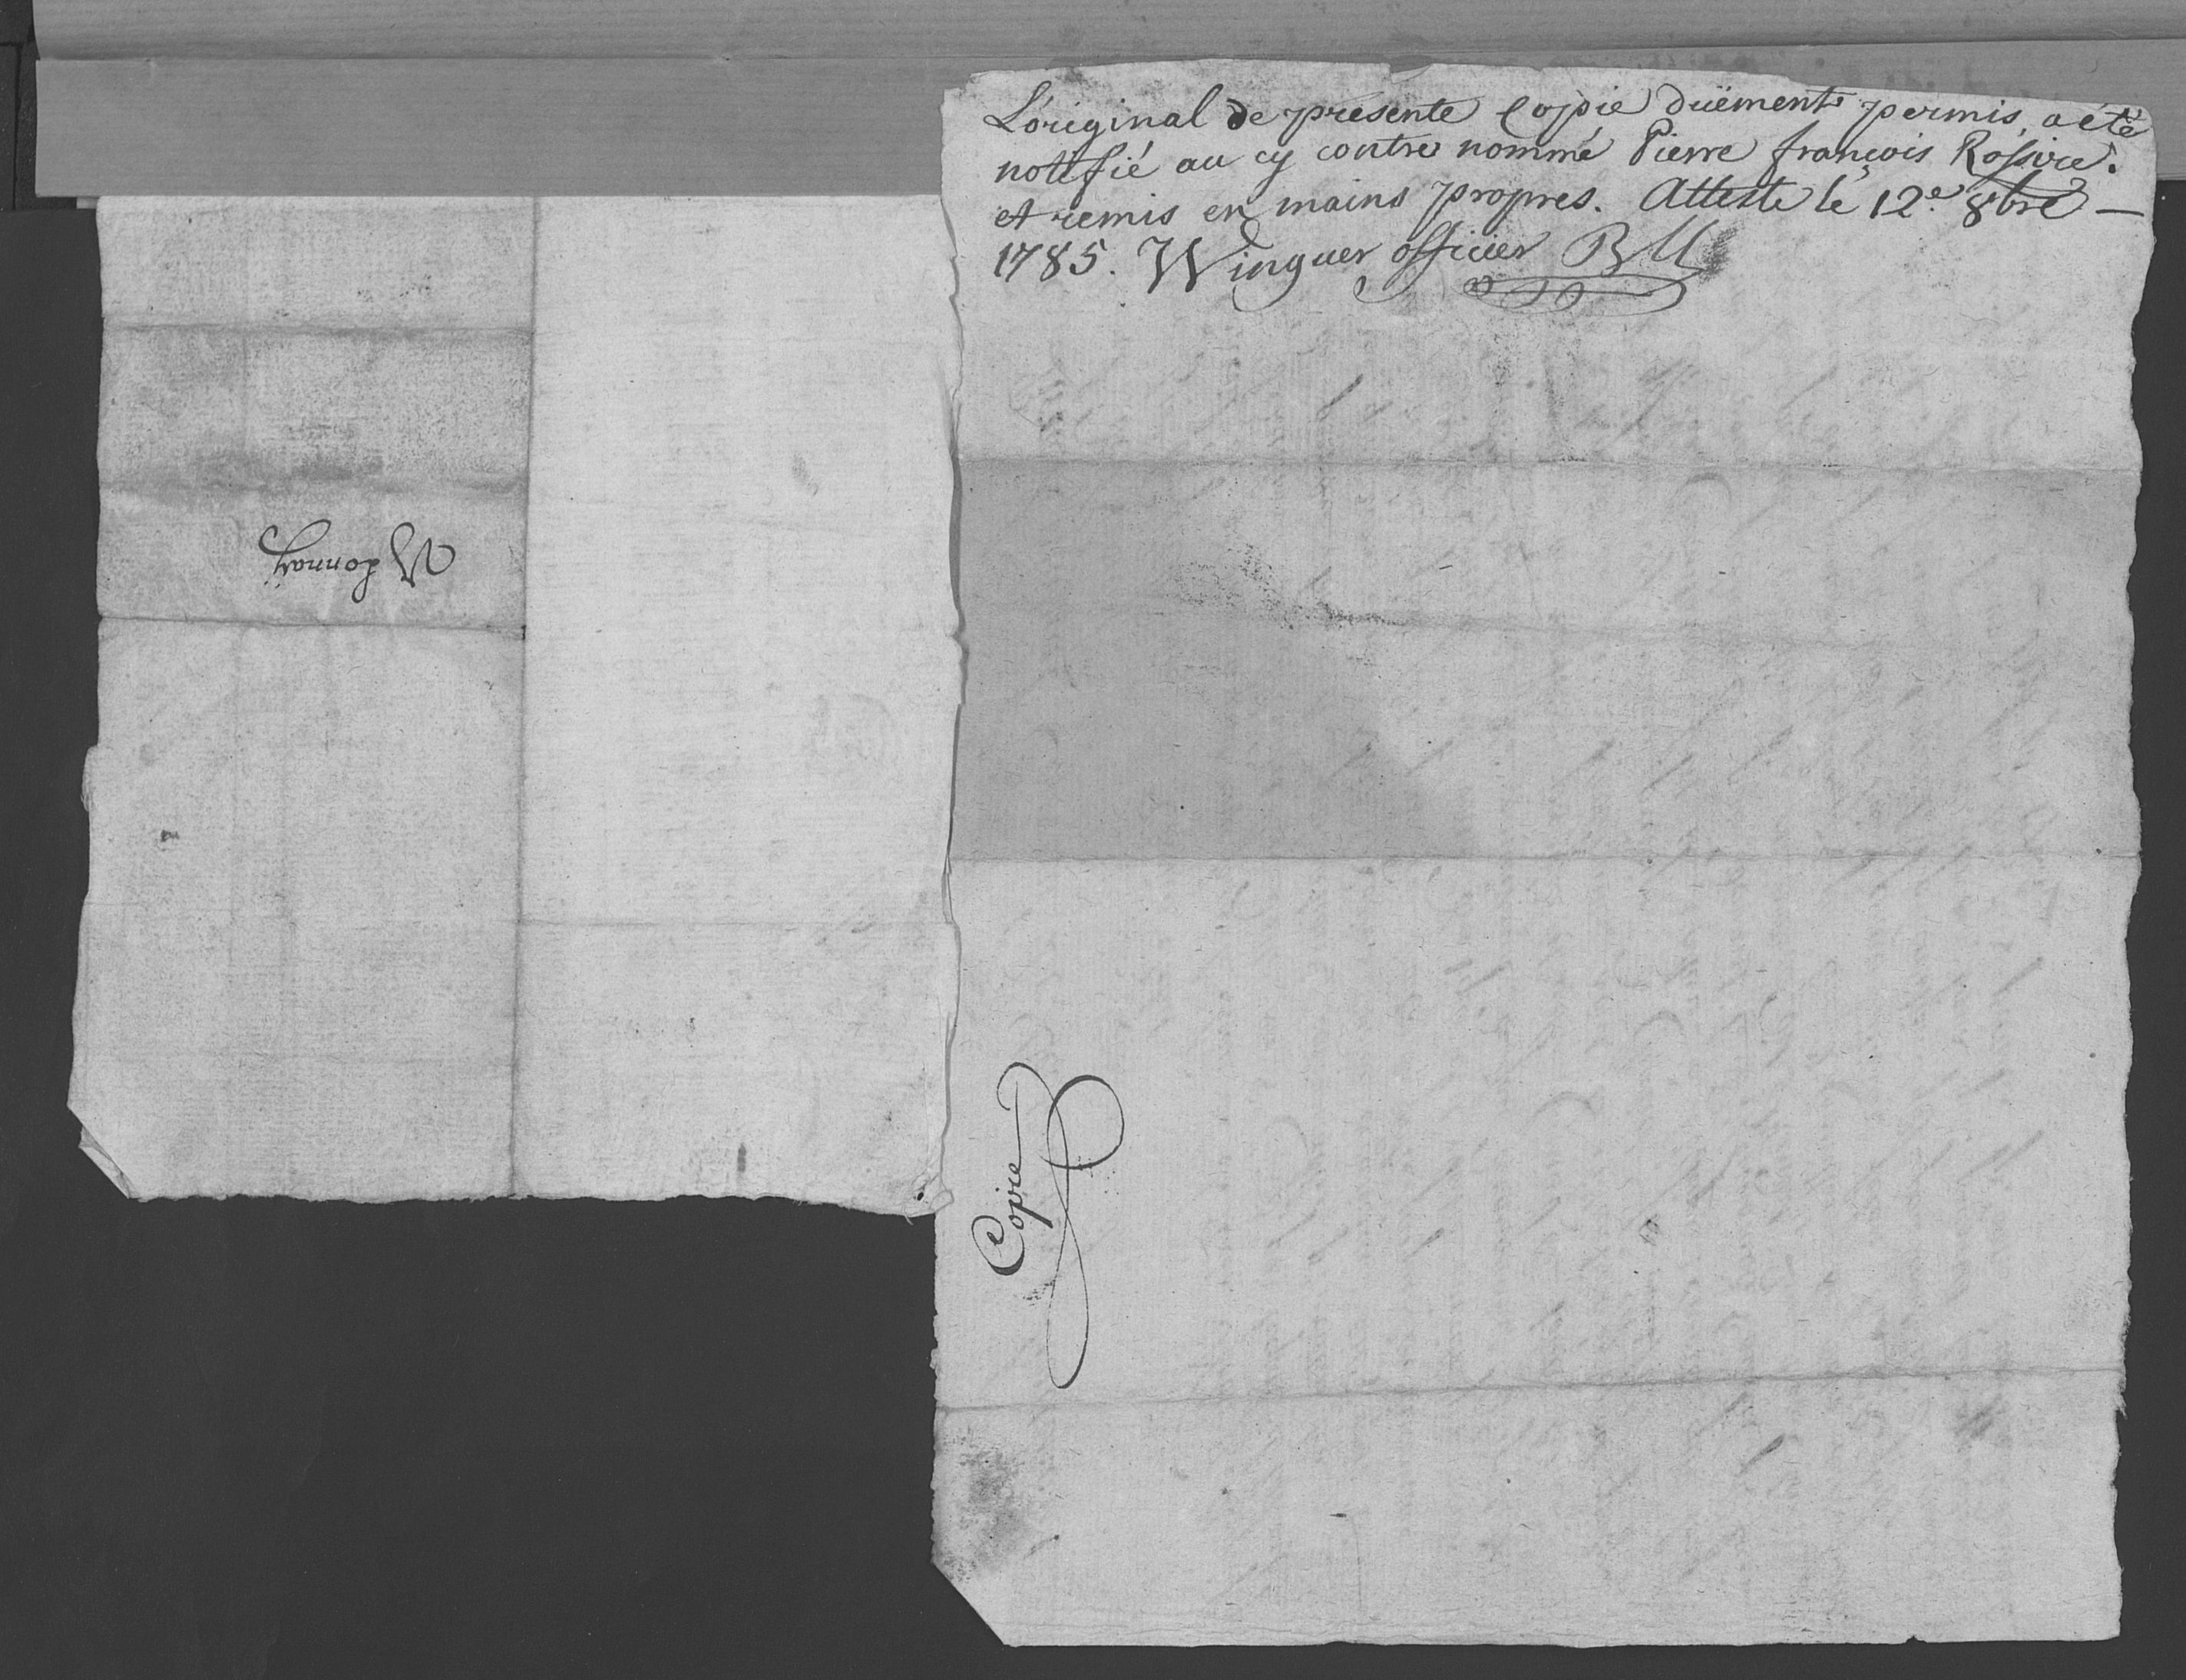 L'original de presente Copie düëment permis, a été
notifié au cy contre nommé Pierre françois Rossire.
et remis en mains propres. Atteste le 12.e 8bre —
1785. Winguer officier
Copie
donnay